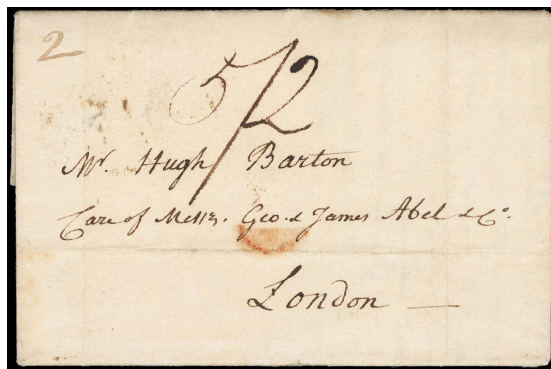 2
5/2
Mr. Hugh Barton
Care of Messrs. Geo. & James Abel & Co.
London